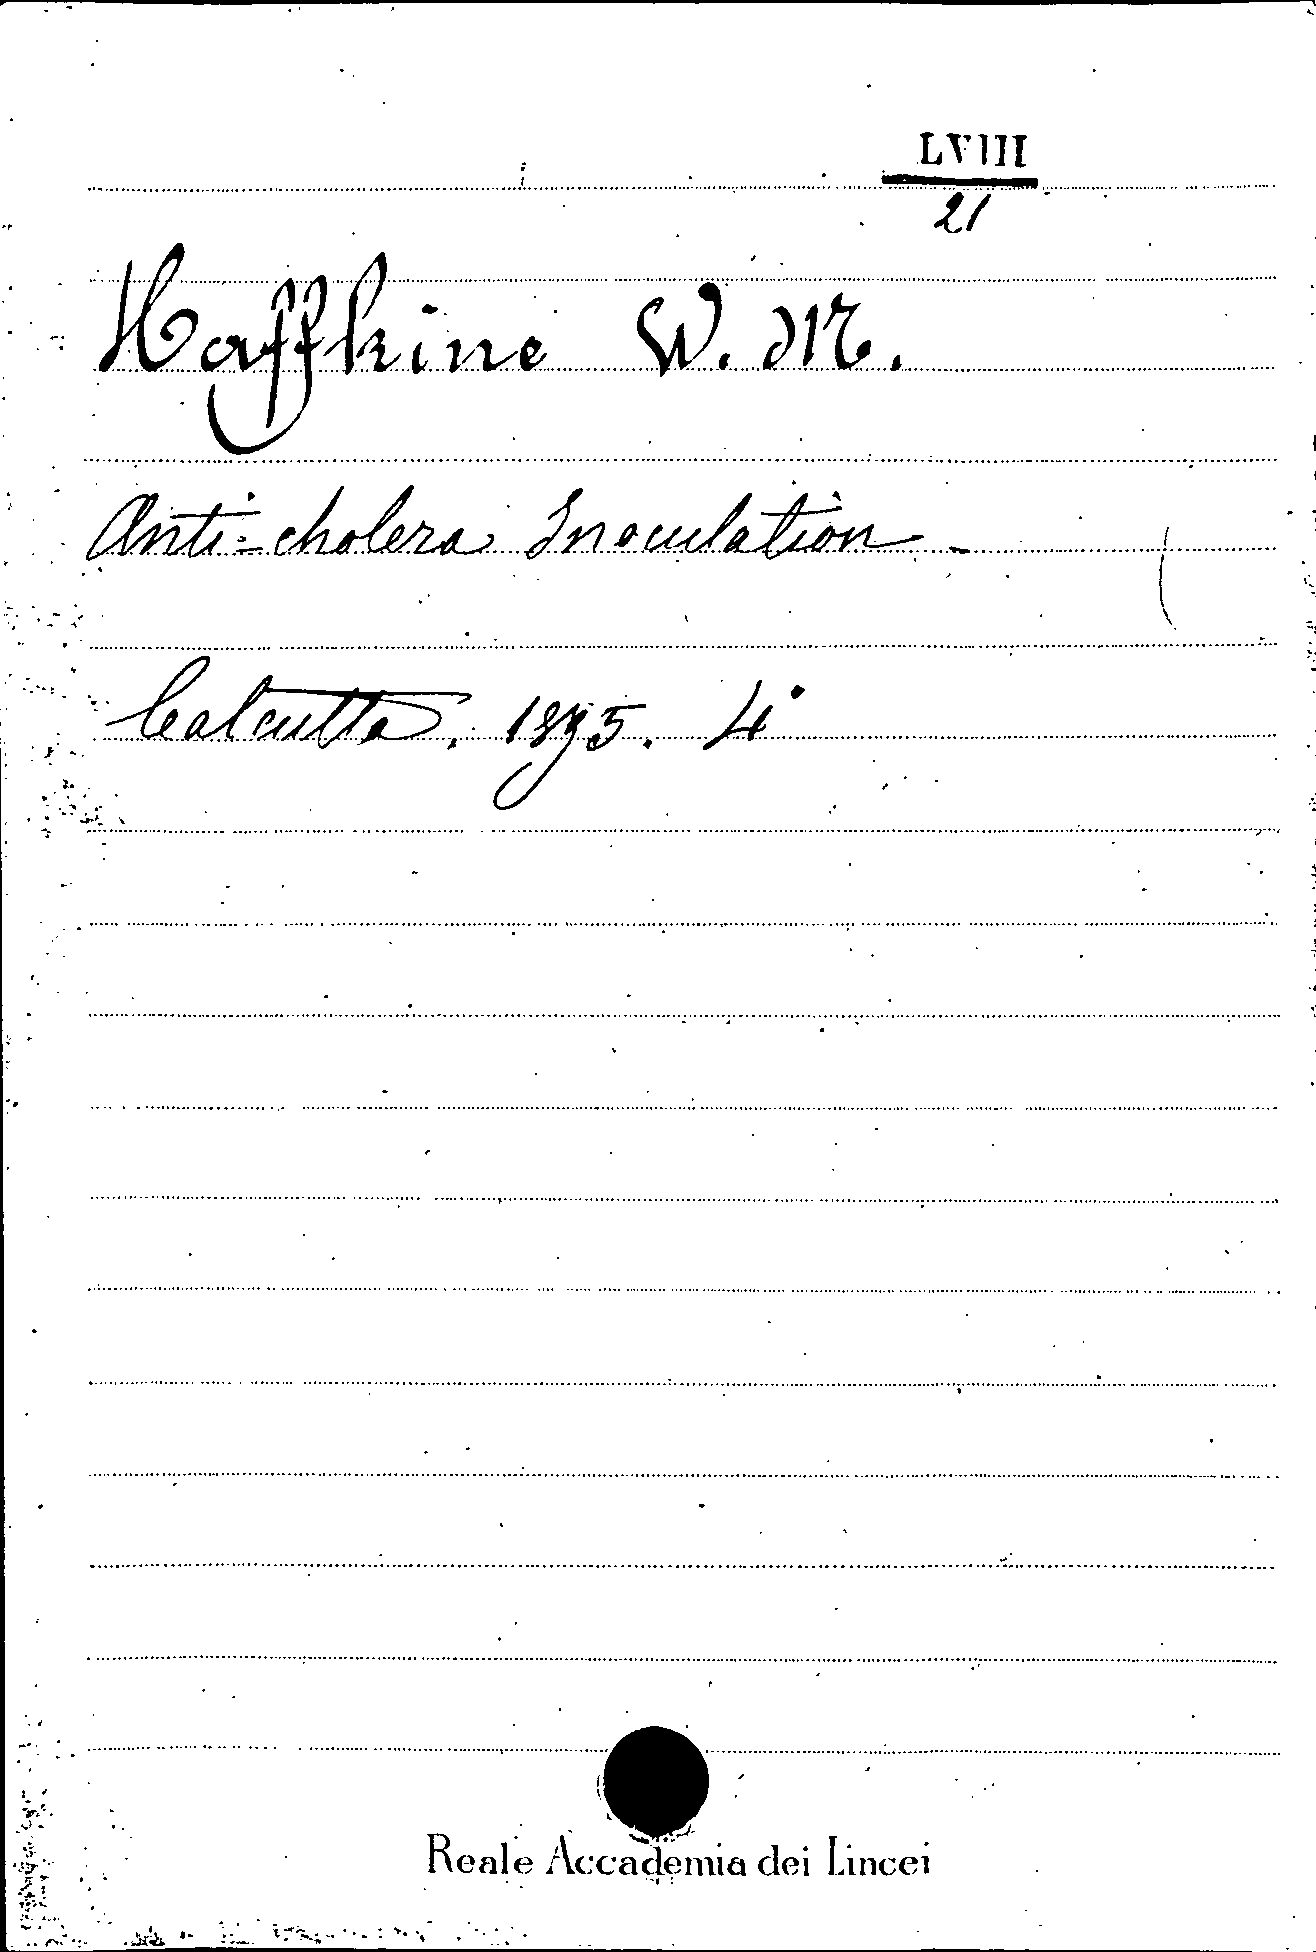 LVIII
21
Haffkine W. M.
Anti-cholera Inoculation -
Calcutta. 1895. 4°
Reale Accademia dei Lincei